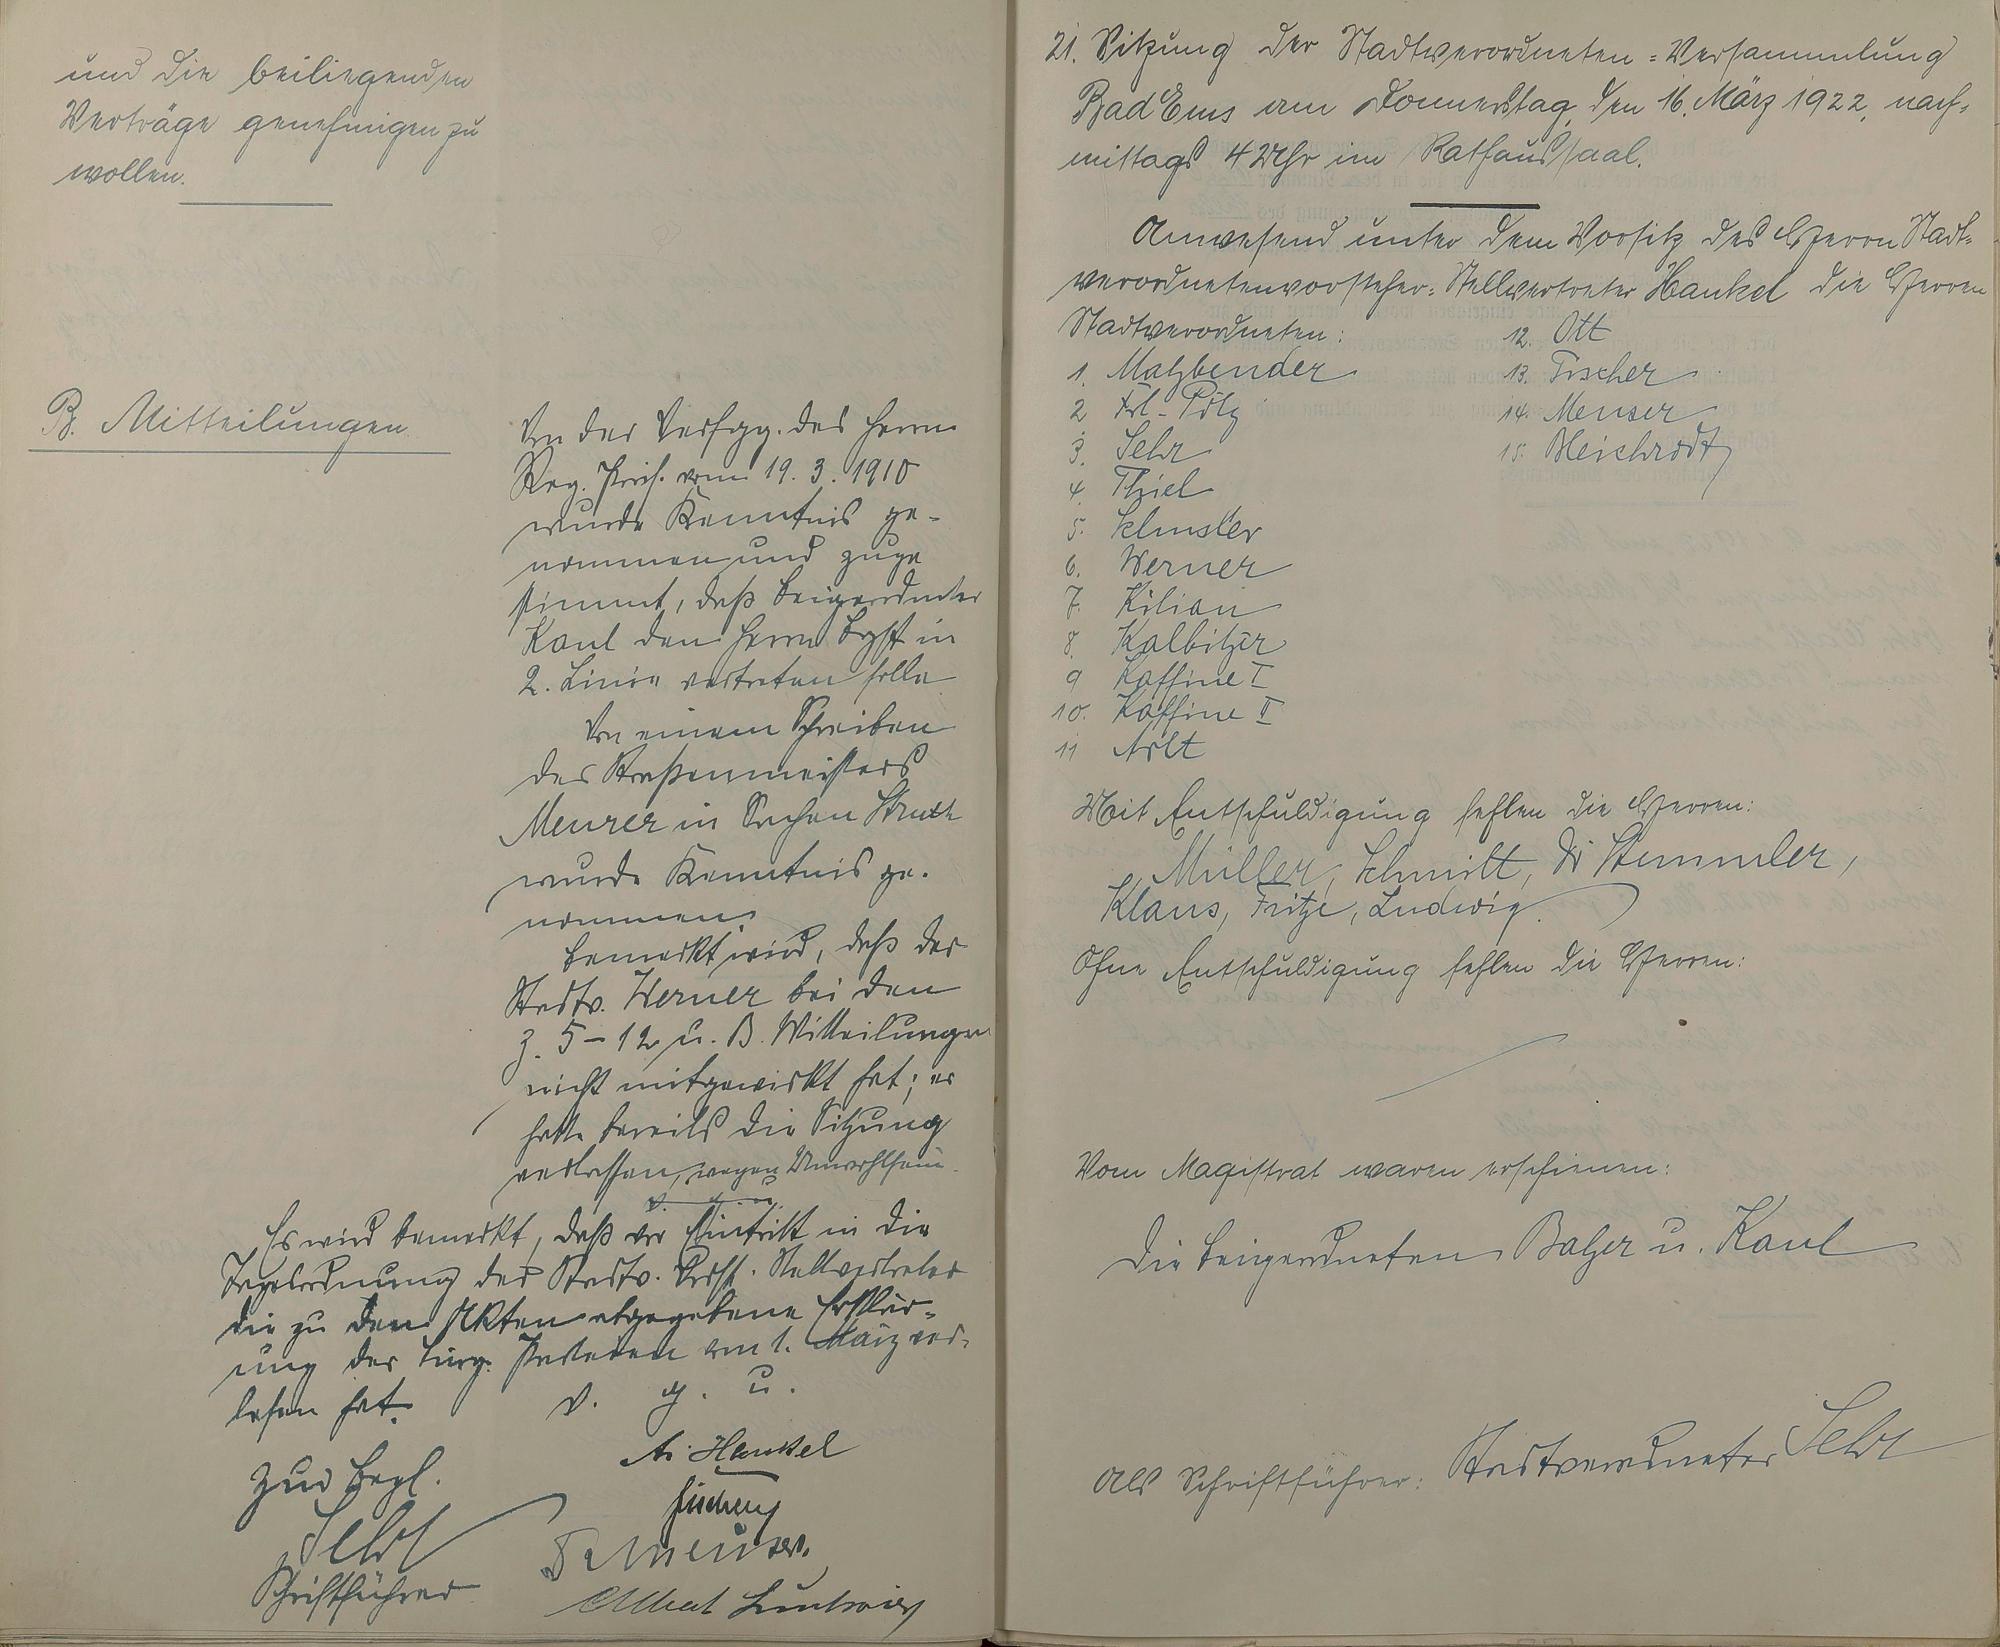 und die beiliegenden
Verträge genehmigen zu
wollen.
B. Mitteilungen
Von der Verfgg. des Herrn
Reg. Präs. vom 19. 3. 1910
wurde Kenntnis ge-
nommen und zuge
stimmt, daß Beigeordneter
Kaul den Herrn in
2. Linie vertreten solle
Von einem Schreiben
des Straßenmeisters
Meurer in Sachen
wurde Kenntnis ge-
nommen.
Bemerkt wird, daß der
Stadtv. Werner bei den
Z. 5–12 u. B. Mitteilungen
nicht mitgewirkt hat; er
hatte bereits die Sitzung
verlassen, wegen Unwohlsein.
Es wird bemerkt, daß vor Eintritt in die
Tagesordnung der Stadtv. Vorst. Stellvertreter
die zu den Akten abgegebene Erklär-
ung der bürg. Parteien vom 1. März ver-
lesen hat.
v. g. u.
Hankel
zur Begl.
Sehr
Schriftführer
Albert Ludwig
21. Sitzung der Stadtverordneten=Versammlung
Bad Ems am Donnerstag, den 16. März 1922, nach-
mittags 4 Uhr im Rathaussaal.
Anwesend unter dem Vorsitz des Herrn Stadt-
verordnetenvorsteher=Stellvertreter Hankel die Herren
Stadtverordneten:
1. Malzbender
2 Frl. Pilz
3. Sehr
4. Thiel
5. Schuster
6. Werner
7. Kilian
8. Kalbitzer
9 Kaffine I
10. Kaffine II
11 Arlt
12. Ott
13. Fischer
14. Menser
15. Bleichrodt
Mit Entschuldigung fehlen die Herren:
Müller, Schmitt, Dr Stemmler,
Klaus, Fritze, Ludwig.
Ohne Entschuldigung fehlen die Herren:
Vom Magistrat waren erschienen:
Die Beigeordneten Balzer u. Kaul
Als Schriftführer: Stadtverordneter Sehr